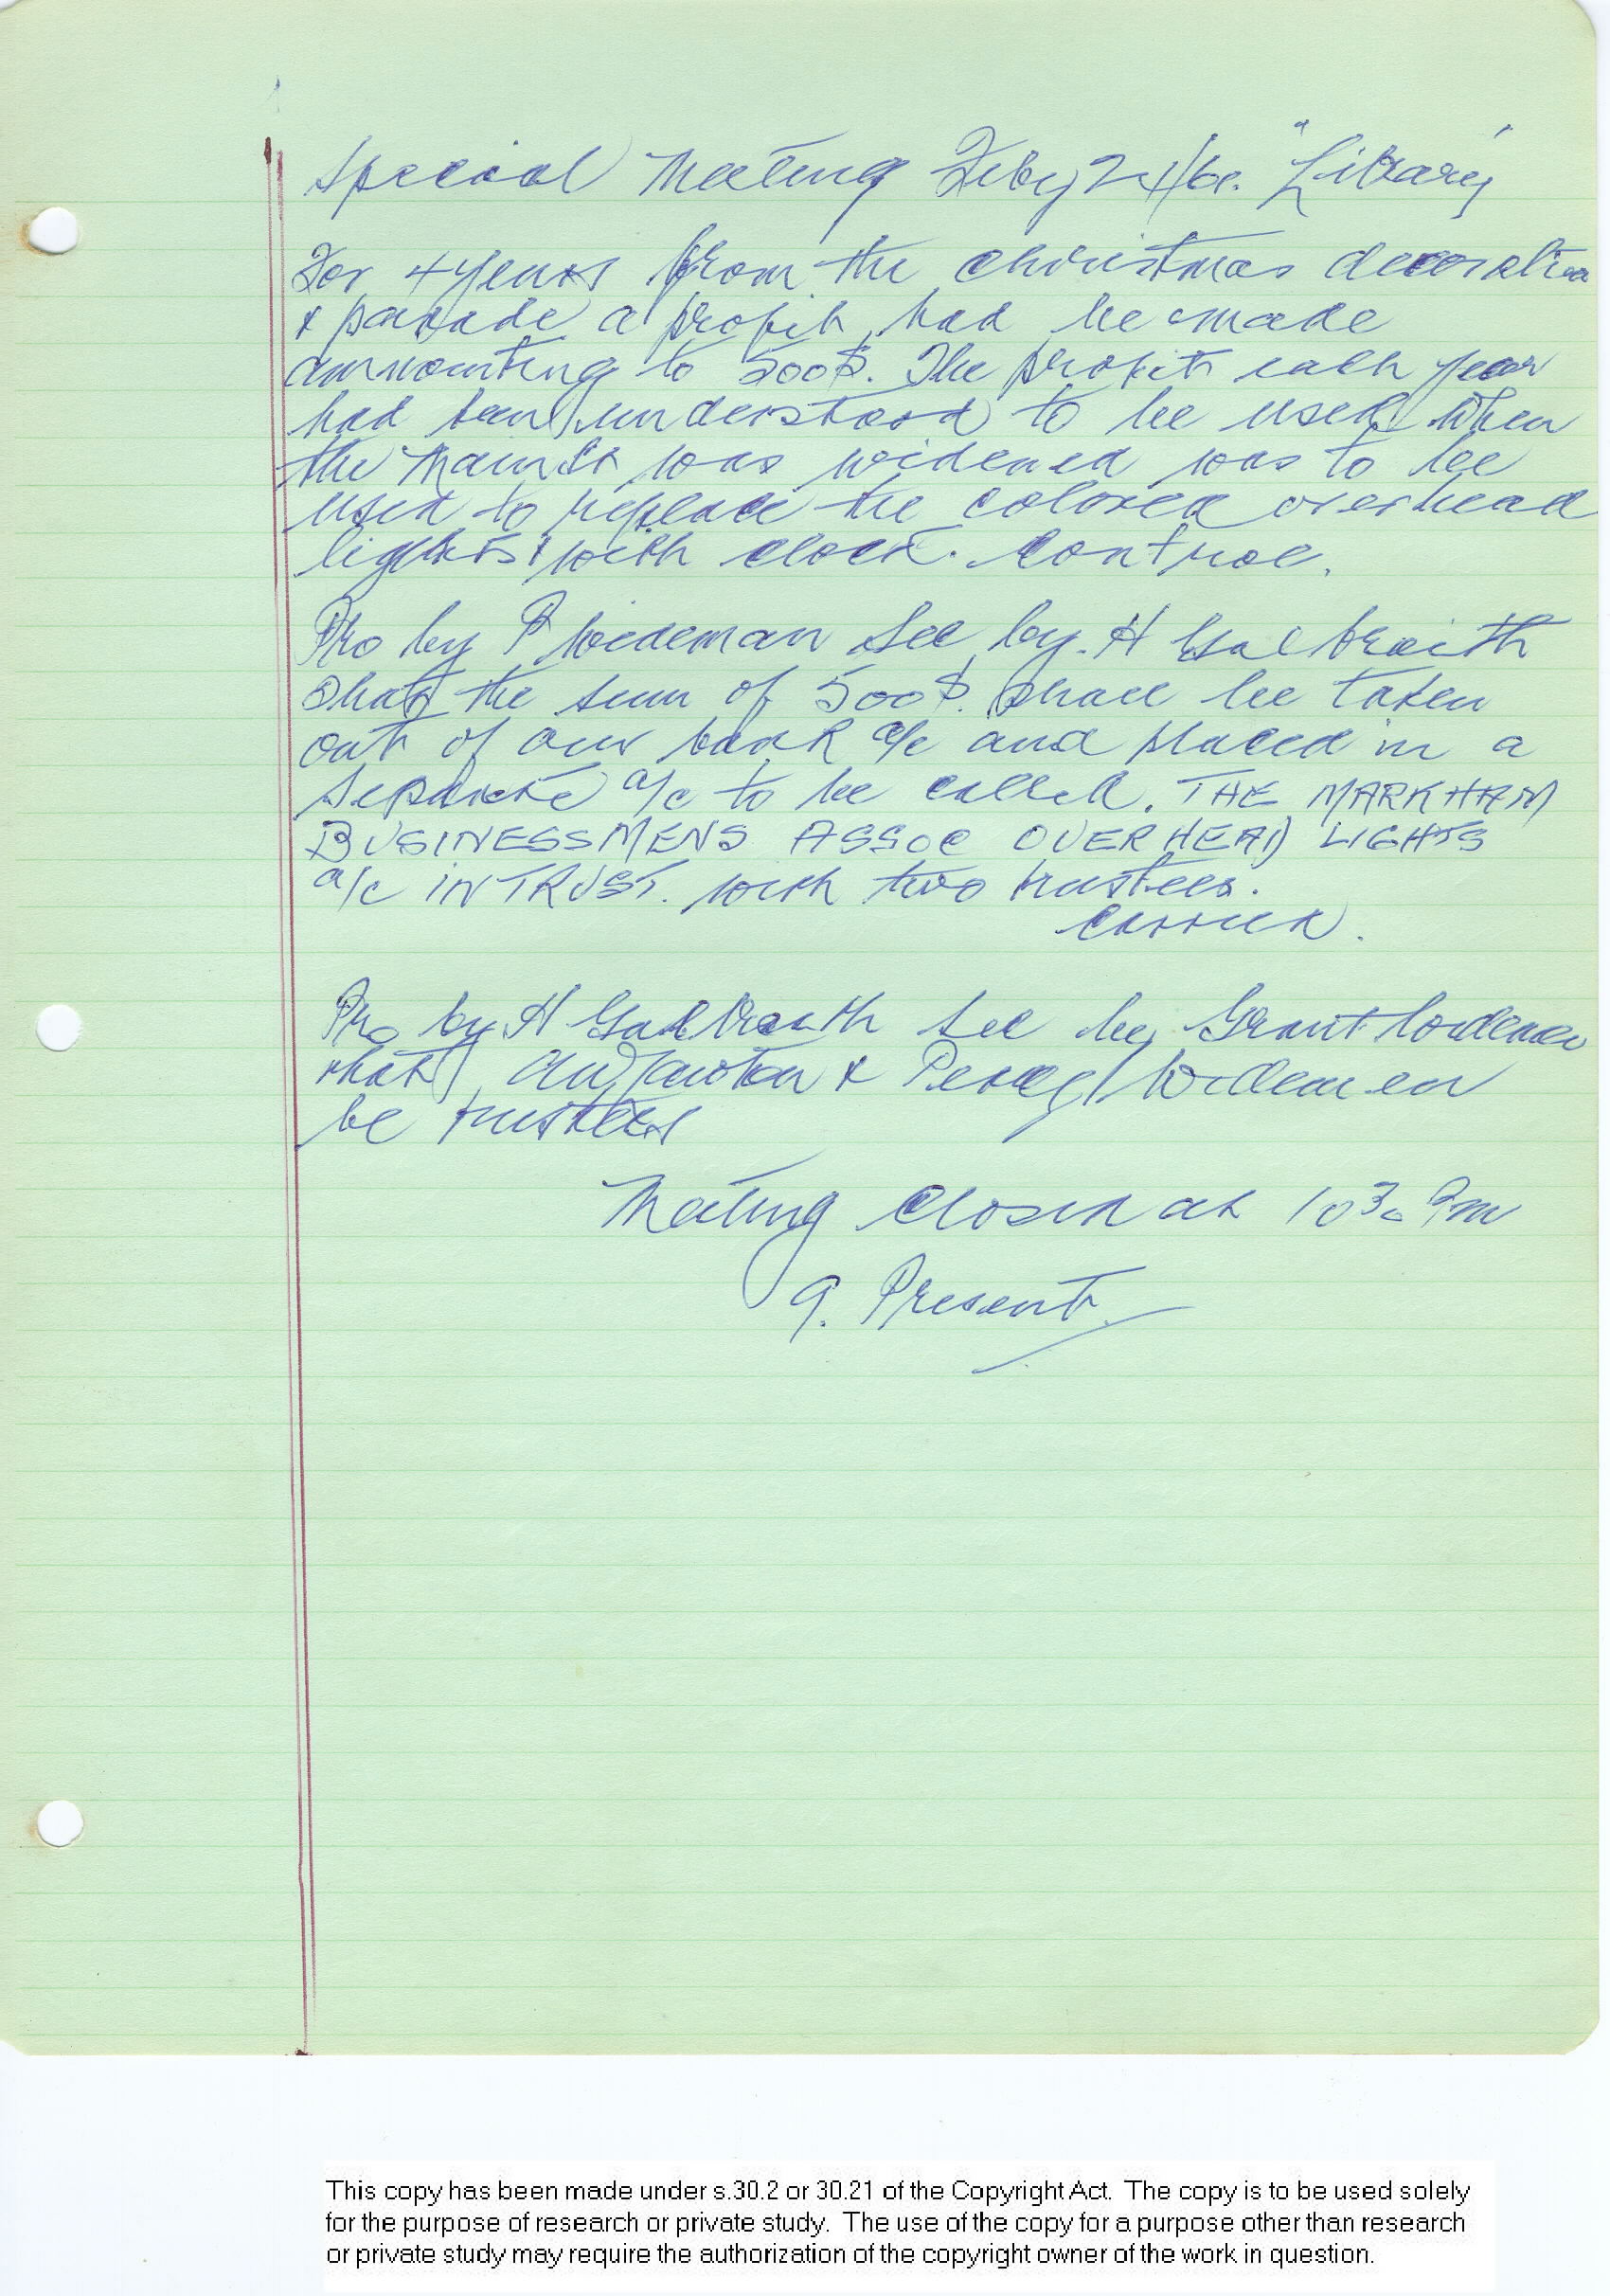 Special Meeting Feby 24/60. "Library"
For 4 years from the Christmas decoration
& parade a profit had be made
ammounting to 500$. The profit each year
had been understood to be used when
the Main St was widened was to be
used to replace the colored overhead
lights with clock control.
Pro by P Wideman Sec by. H Galbraith
that the sum of 500$. shall be taken
out of our bank a/c and placed in a
seperate a/c to be called. THE MARKHAM
BUSINESSMENS ASSOC OVERHEAD LIGHTS
a/c IN TRUST. with two trustees.
Carried.
Pro by H Galbraith Sec by Grant Wideman
that & Percy Wideman
be trustees
Meeting Closed at 10 30 Pm
9. Present.
This copy has been made under s.30.2 or 30.21 of the Copyright Act. The copy is to be used solely
for the purpose of research or private study. The use of the copy for a purpose other than research
or private study may require the authorization of the copyright owner of the work in question.